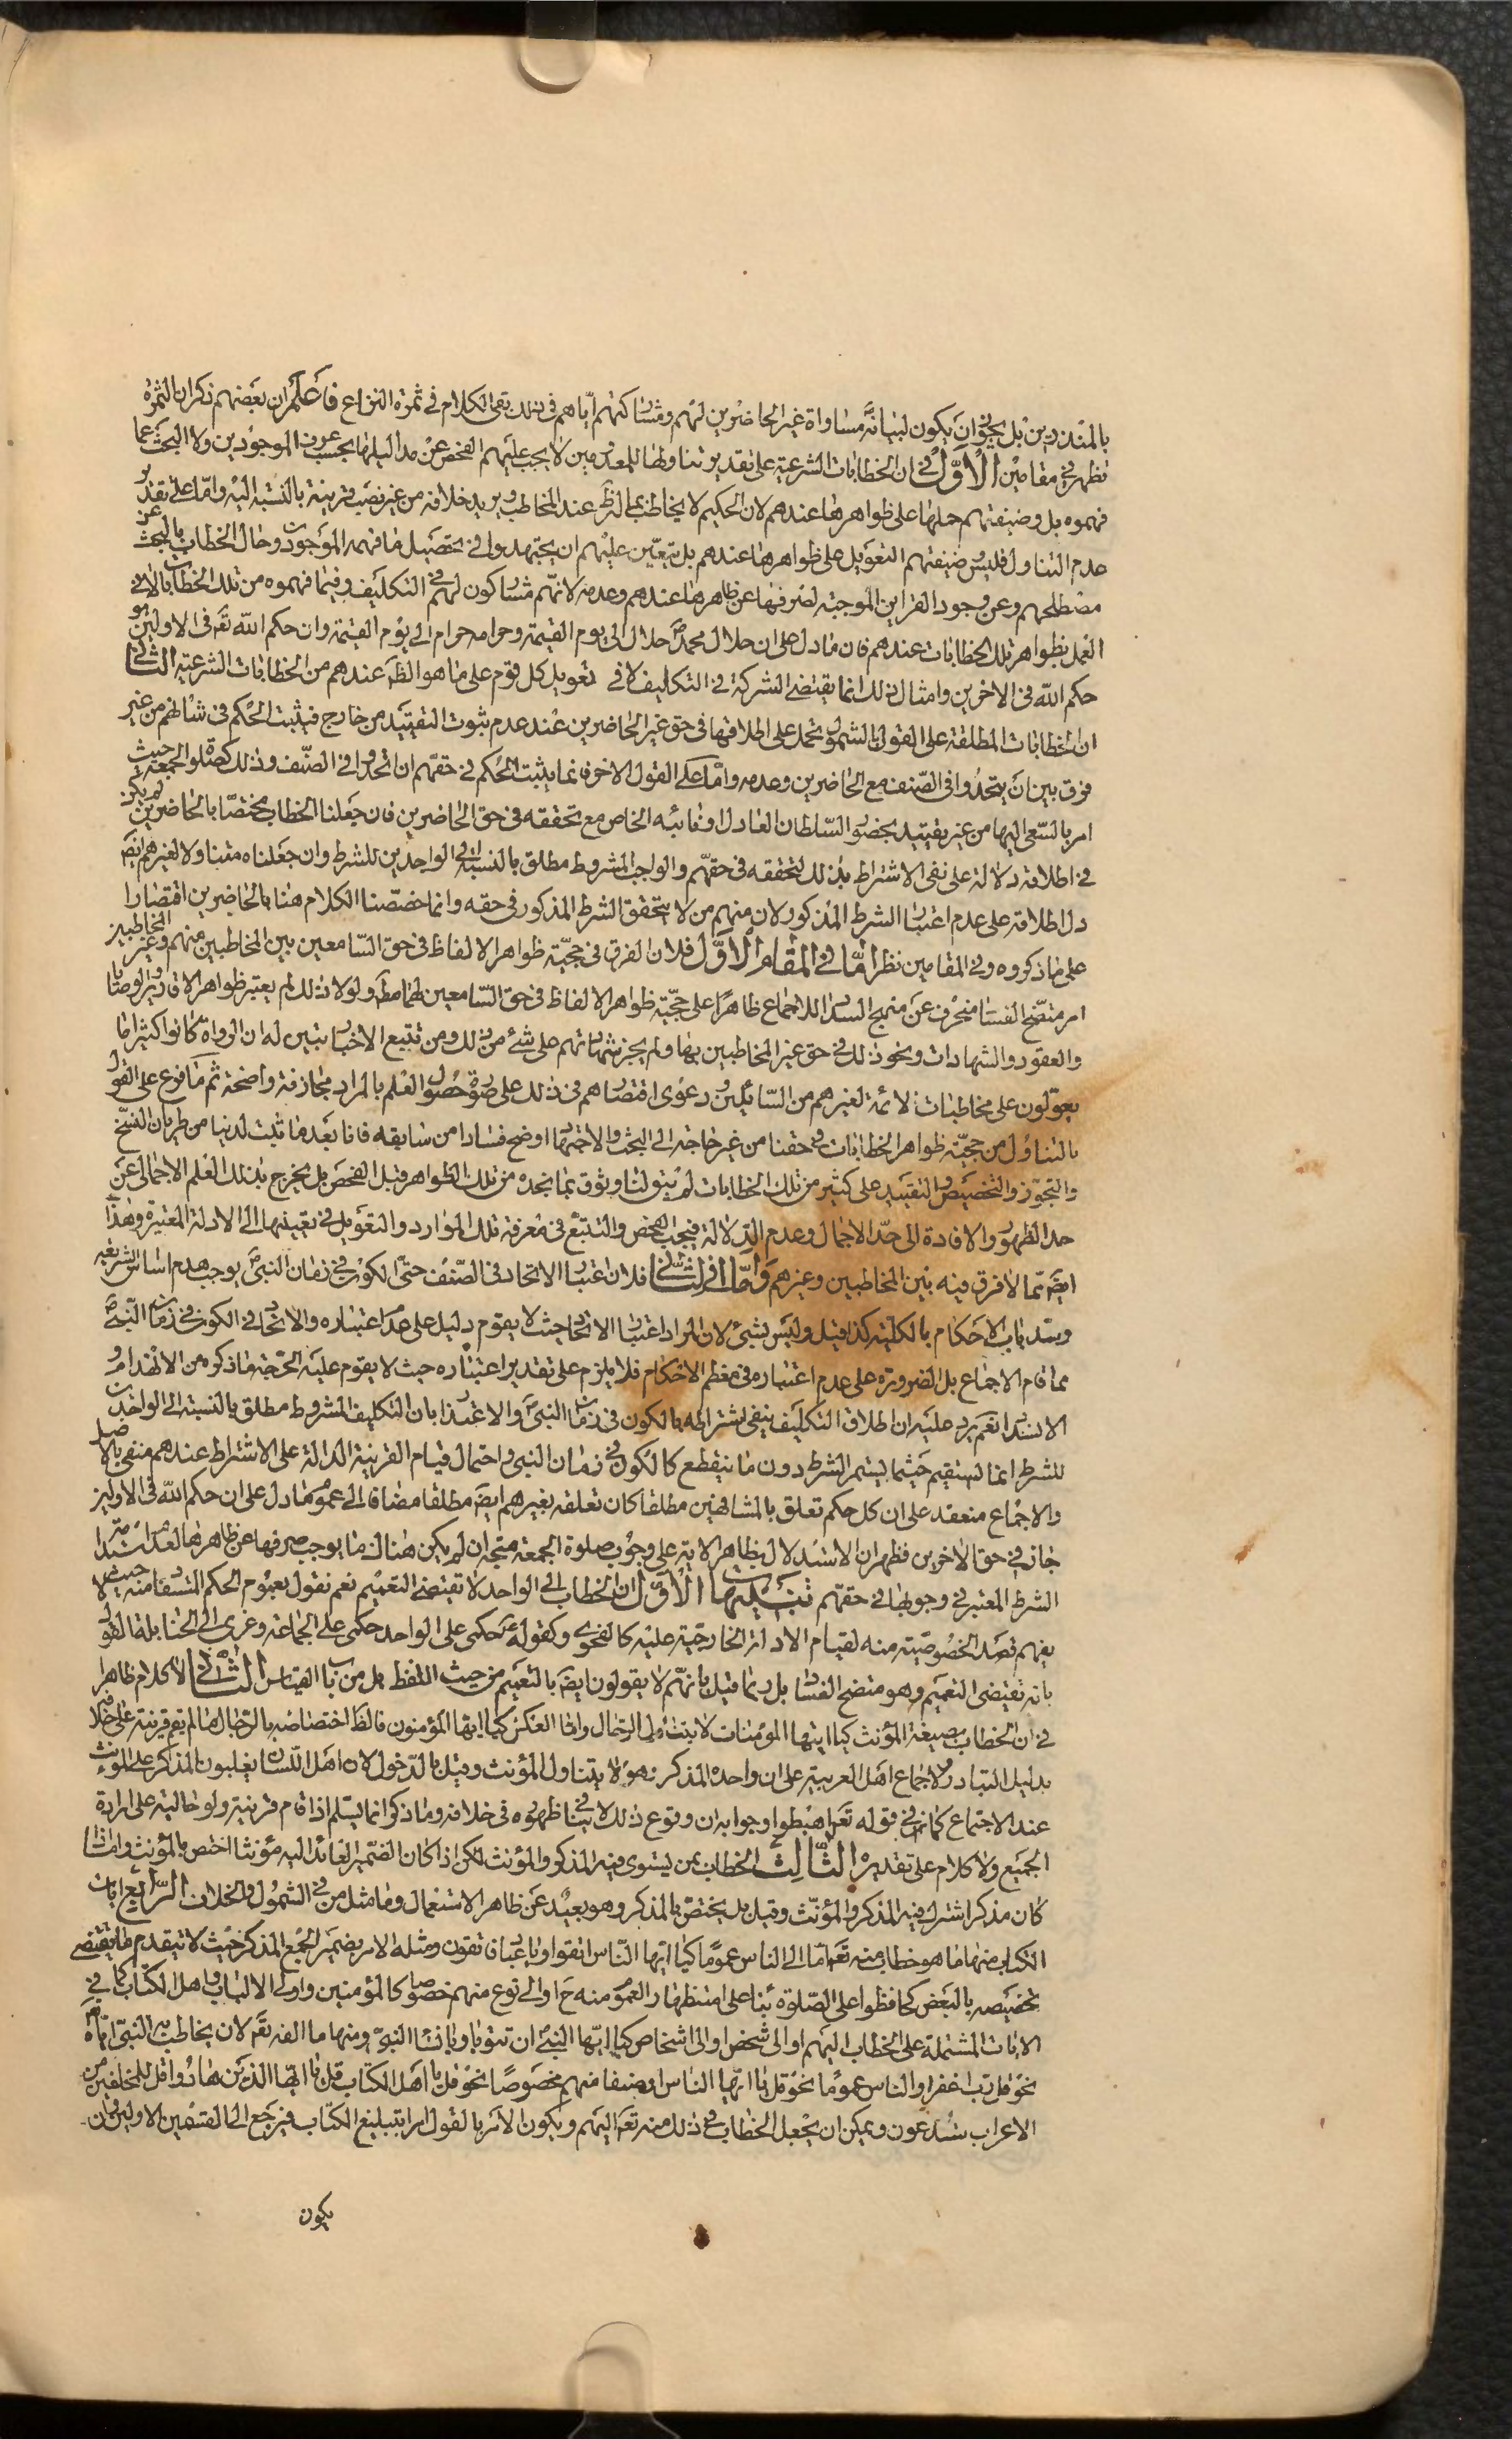 بالمنذرين بل يجوز ان يكون لبيان مساواة غير الحاضرين لهم ومشاركتهم اياهم في ذلك بقى الكلام في ثمرة النزاع فاعلم ان بعضهم ذكر ان الثمرة
تظهر في مقامين الأوّل في ان الخطابات الشرعية على تقدير تناولها للمعدومين لا يجب عليهم الفحص عن مداليلها بحسب عرف الموجودين ولا البحث عما
فهموه بل وضيفتهم حملها على ظواهرها عندهم لان الحكيم لا يخاطب بما له ظهر عند المخاطب ويريد خلافه من غير نصب قرينة بالنسبة اليه واما على تقدير
عدم التناول فليس وضيفتهم التعويل على ظواهرها عندهم بل يتعين عليهم ان يجتهدوا في تحصيل ما فهمه الموجودون حال الخطاب بالبحث عن
مصطلحهم وعن وجود القراين الموجبة لصرفها عن ظاهرها عندهم وعدمه لانهم مشاركون لهم في التكليف وفيما فهموه من تلك الخطاب لا في
العمل بظواهر تلك الخطابات عندهم فان ما دل على ان حلال محمد ص حلال الى يوم القيمة وحرامه حرام الى يوم القيمة وان حكم الله تعـ في الاولين هو
حكم الله في الاخرين وامثال ذلك انما يقتضى الشركة في التكاليف لا في تعويل كل قوم على ما هو الظـ عندهم من الخطابات الشرعية الثاني
ان الخطابات المطلقة على القول بالشمول تحمل على اطلاقها في حق غير الحاضرين عند عدم ثبوت التقييد من خارج فيثبت الحكم في شانهم من غير
فرق بين ان يتحدوا في الصنف مع الحاضرين وعدمه واما على القول الاخر فانما يثبت الحكم في حقهم ان اتحدوا في الصنف وذلك كصلوة الجمعة حيث
امر بالسعى اليها من غير تقييد بحضور السلطان العادل او نائبه الخاص مع تحققه في حق الحاضرين فان جعلنا الخطاب مختصا بالحاضرين لم يكن
في اطلاقه دلالة على نفى الاشتراط بذلك لتحققه في حقهم والواجب المشروط مطلق بالنسبة الى الواجدين للشرط وان جعلناه متناولا لغيرهم ايضـ
دل اطلاقه على عدم اعتبار الشرط المذكور لان منهم من لا يتحقق الشرط المذكور في حقه وانما خصصنا الكلام هنا بالحاضرين اقتصارا
على ما ذكروه وفي المقامين نظر اما في المقام الاوّل فلان الفرق في حجية ظواهر الالفاظ في حق السامعين بين المخاطبين منهم وغير المخاطبين
امر متضح الفساد منحرف عن منهج السداد للاجماع ظاهرا على حجية ظواهر الالفاظ في حق السامعين لها مطـ ولولا ذلك لم يعتبر ظواهر الاقارير والوصايا
والعقود والشهادات ونحو ذلك في حق غير المخاطبين بها ولم يجز شهاداتهم على شئ من ذلك ومن تتبع الاخبار تبين له ان الرواة كانوا كثيرا ما
يعولون على مخاطبات الائمة لغيرهم من السائلين ودعوى اقتصارهم في ذلك على صورة حصول العلم بالمراد مجازفة واضحة ثم ما فرع على القول
بالتناول من حجية ظواهر الخطابات في حقنا من غير حاجة الى البحث والاجتهاد اوضح فسادا من سابقه فانا بعد ما ثبت لدينا من طريان النسخ
والتجوز والتخصيص والتقييد على كثير من تلك الخطابات لم يبق لنا وثوق بما نجده من تلك الظواهر قبل الفحص بل يخرج بذلك العلم الاجمالى عن
حد الظهور والافادة الى حد الاجمال وعدم الدلالة فيجب الفحص والتتبع في معرفة تلك الموارد والتعويل في تعيينها الى الادلة المعتبرة وهذا
ايضـ مما لا فرق فيه بين المخاطبين وغيرهم وامّا في الثاني فلان اعتبار الاتحاد في الصنف حتى الكون في زمان النبي ص يوجب هدم اساس الشريعة
وسد باب الاحكام بالكلية كذا قيل وليس بشئ لان المراد اعتبار الاتحاد حيث لا يقوم دليل على عدم اعتباره والاتحاد في الكون في زمان النبي ص
مما قام الاجماع بل الضرورة على عدم اعتباره في معظم الاحكام فلا يلزم على تقدير اعتباره حيث لا يقوم عليه الحجة ما ذكره من الانهدام و
الانسداد نعم يرد عليه ان اطلاق التكليف ينفى اشتراطه بالكون في زمان النبي ص والاعتذار بان التكليف المشروط مطلق بالنسبة الى الواجدين
للشرط انما يستقيم حيثما يستمر الشرط دون ما ينقطع كالكون في زمان النبي ص واحتمال قيام القرينة الدالة على الاشتراط عندهم منفى بالاصل
والاجماع منعقد على ان كل حكم تعلق بالمشافهين مطلقا كان تعلقه بغيرهم ايضـ مطلقا مضافا الى عموم ما دل على ان حكم الله في الاولين
جار في حق الاخرين فظهر ان الاستدلال بظاهر الاية على وجوب صلوة الجمعة متجه ان لم يكن هناك ما يوجب صرفها عن ظاهرها لعدم استدامة
الشرط المعتبر في وجوبها في حقهم تنبيهات الأوّل ان الخطاب الى الواحد لا تقتضى التعميم نعم نقول بعموم الحكم المستفاد منه حيث لا
يفهم قصد الخصوصية منه لقيام الادلة الخارجية عليه كالفحوى وكقوله ص حكمى على الواحد حكمى على الجماعة وغزى الى الحنابلة القول
بانه تقتضى التعميم وهو متضح الفساد بل ربما قيل بانهم لا يقولون ايضـ بالتعميم من حيث اللفظ بل من باب القياس الثاني لا كلام ظاهرا
في ان الخطاب بصيغة المؤنث كيا ايتها المؤمنات لا يتناول الرجال واما العكس كيا ايها المؤمنون فالظـ اختصاصه بالرجال ما لم يقم قرينة على خلافه
بدليل التبادر ولاجماع اهل العربية على ان واحده المذكر فهو لا يتناول المؤنث وقيل بالدخول لان اهل اللسان يغلبون المذكر على المؤنث
عند الاجتماع كما في قوله تعـ اهبطوا وجوابه ان وقوع ذلك لا ينافي ظهوره في خلافه وما ذكر انما يسلم اذا قام قرينة ولو حالية على ارادة
الجميع ولا كلام على تقديره الثّالث الخطاب بمن يستوى فيه المذكر والمؤنث لكن اذا كان الضمير العائد اليه مؤنثا اختص بالمؤنث وان
كان مذكرا اشترك فيه المذكر والمؤنث وقيل بل يختص بالمذكر وهو بعيد عن ظاهر الاستعمال وما مثل من في الشمول والخلاف الرّابع ايات
الكتاب منها ما هو خطاب منه تعـ اما الى الناس عموما كيا ايها الناس اتقوا ويا عباد فاتقون ومثله الامر بضمير الجمع المذكر حيث لا يتقدم ما يقتضى
تخصيصه بالبعض كحافظوا على الصلوة بناء على استظهار العموم منه ح او الى نوع منهم خصوصا كالمؤمنين واولى الالباب واهل الكتاب كما في
الايات المشتملة على الخطاب اليهم او الى شخص او الى اشخاص كيا ايها النبي ان تتوبا ويا نساء النبي ومنها ما الفه تعـ لان يخاطب به النبي ص اياه
نحو قل رب اغفر او الناس عموما نحو قل يا ايها الناس او صنفا منهم مخصوصا نحو قل يا اهل الكتاب قل يا ايها الذين هادوا قل للمخلفين من
الاعراب ستدعون ويمكن ان يجعل الخطاب في ذلك منه تعـ اليهم ويكون الامر بالقول امرا بتبليغ الكتاب فيرجع الى القسمين الاولين وان
يكون